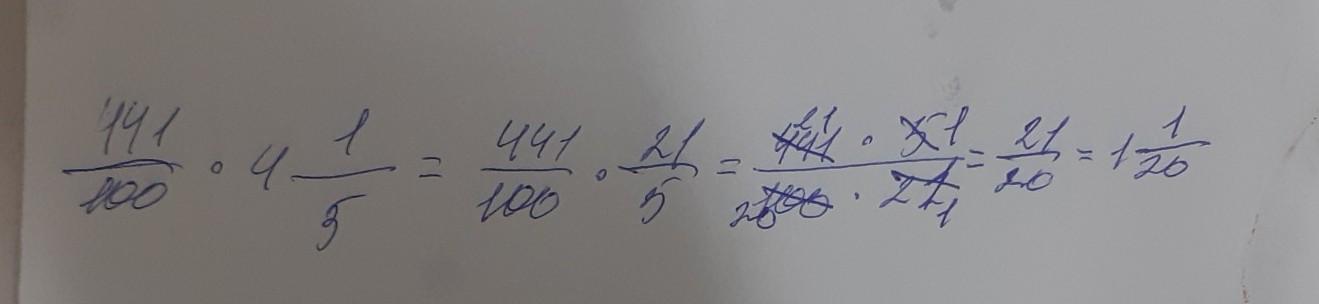 441/100 · 4 1/5 = 441/100 · 21/5 = 441 21 · 5 1 / 100 20 · 21 1 = 21/20 = 1 1/20